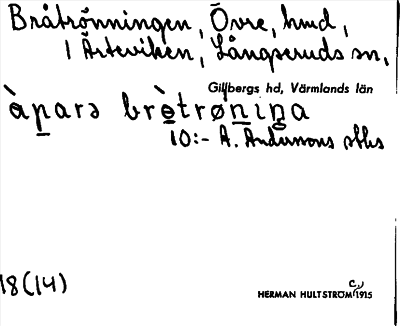 Bråtrönningen, Övre, hmd,
i Ärteviken, Långseruds sn,
Gillbergs hd, Värmlands län
ὰparə brètrøniŋa
10:- A. Anderssons stbs
18(14)
HERMAN HULTSTRÖM 1915